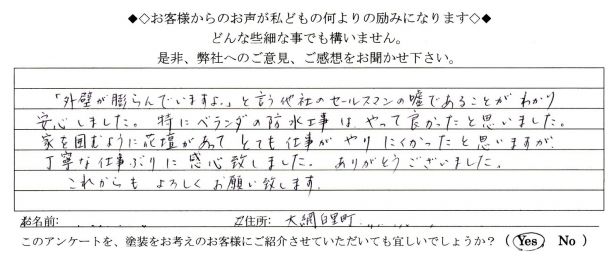 ◆◇お客様からのお声が私どもの何よりの励みになります◇◆
どんな些細な事でも構いません。
是非、弊社へのご意見、ご感想をお聞かせ下さい。
「外壁が膨らんでいますよ。」と言う他社のセールスマンの嘘であることがわかり
安心しました。特にベランダの防水工事はやって良かったと思いました。
家を囲むように花壇があってとても仕事がやりにくかったと思いますが、
丁寧な仕事ぶりに感心致しました。ありがとうございました。
これからもよろしくお願い致します。
お名前: ご住所: 大網白里町
このアンケートを、塗装をお考えのお客様にご紹介させていただいても宜しいでしょうか?( Yes ・ No )